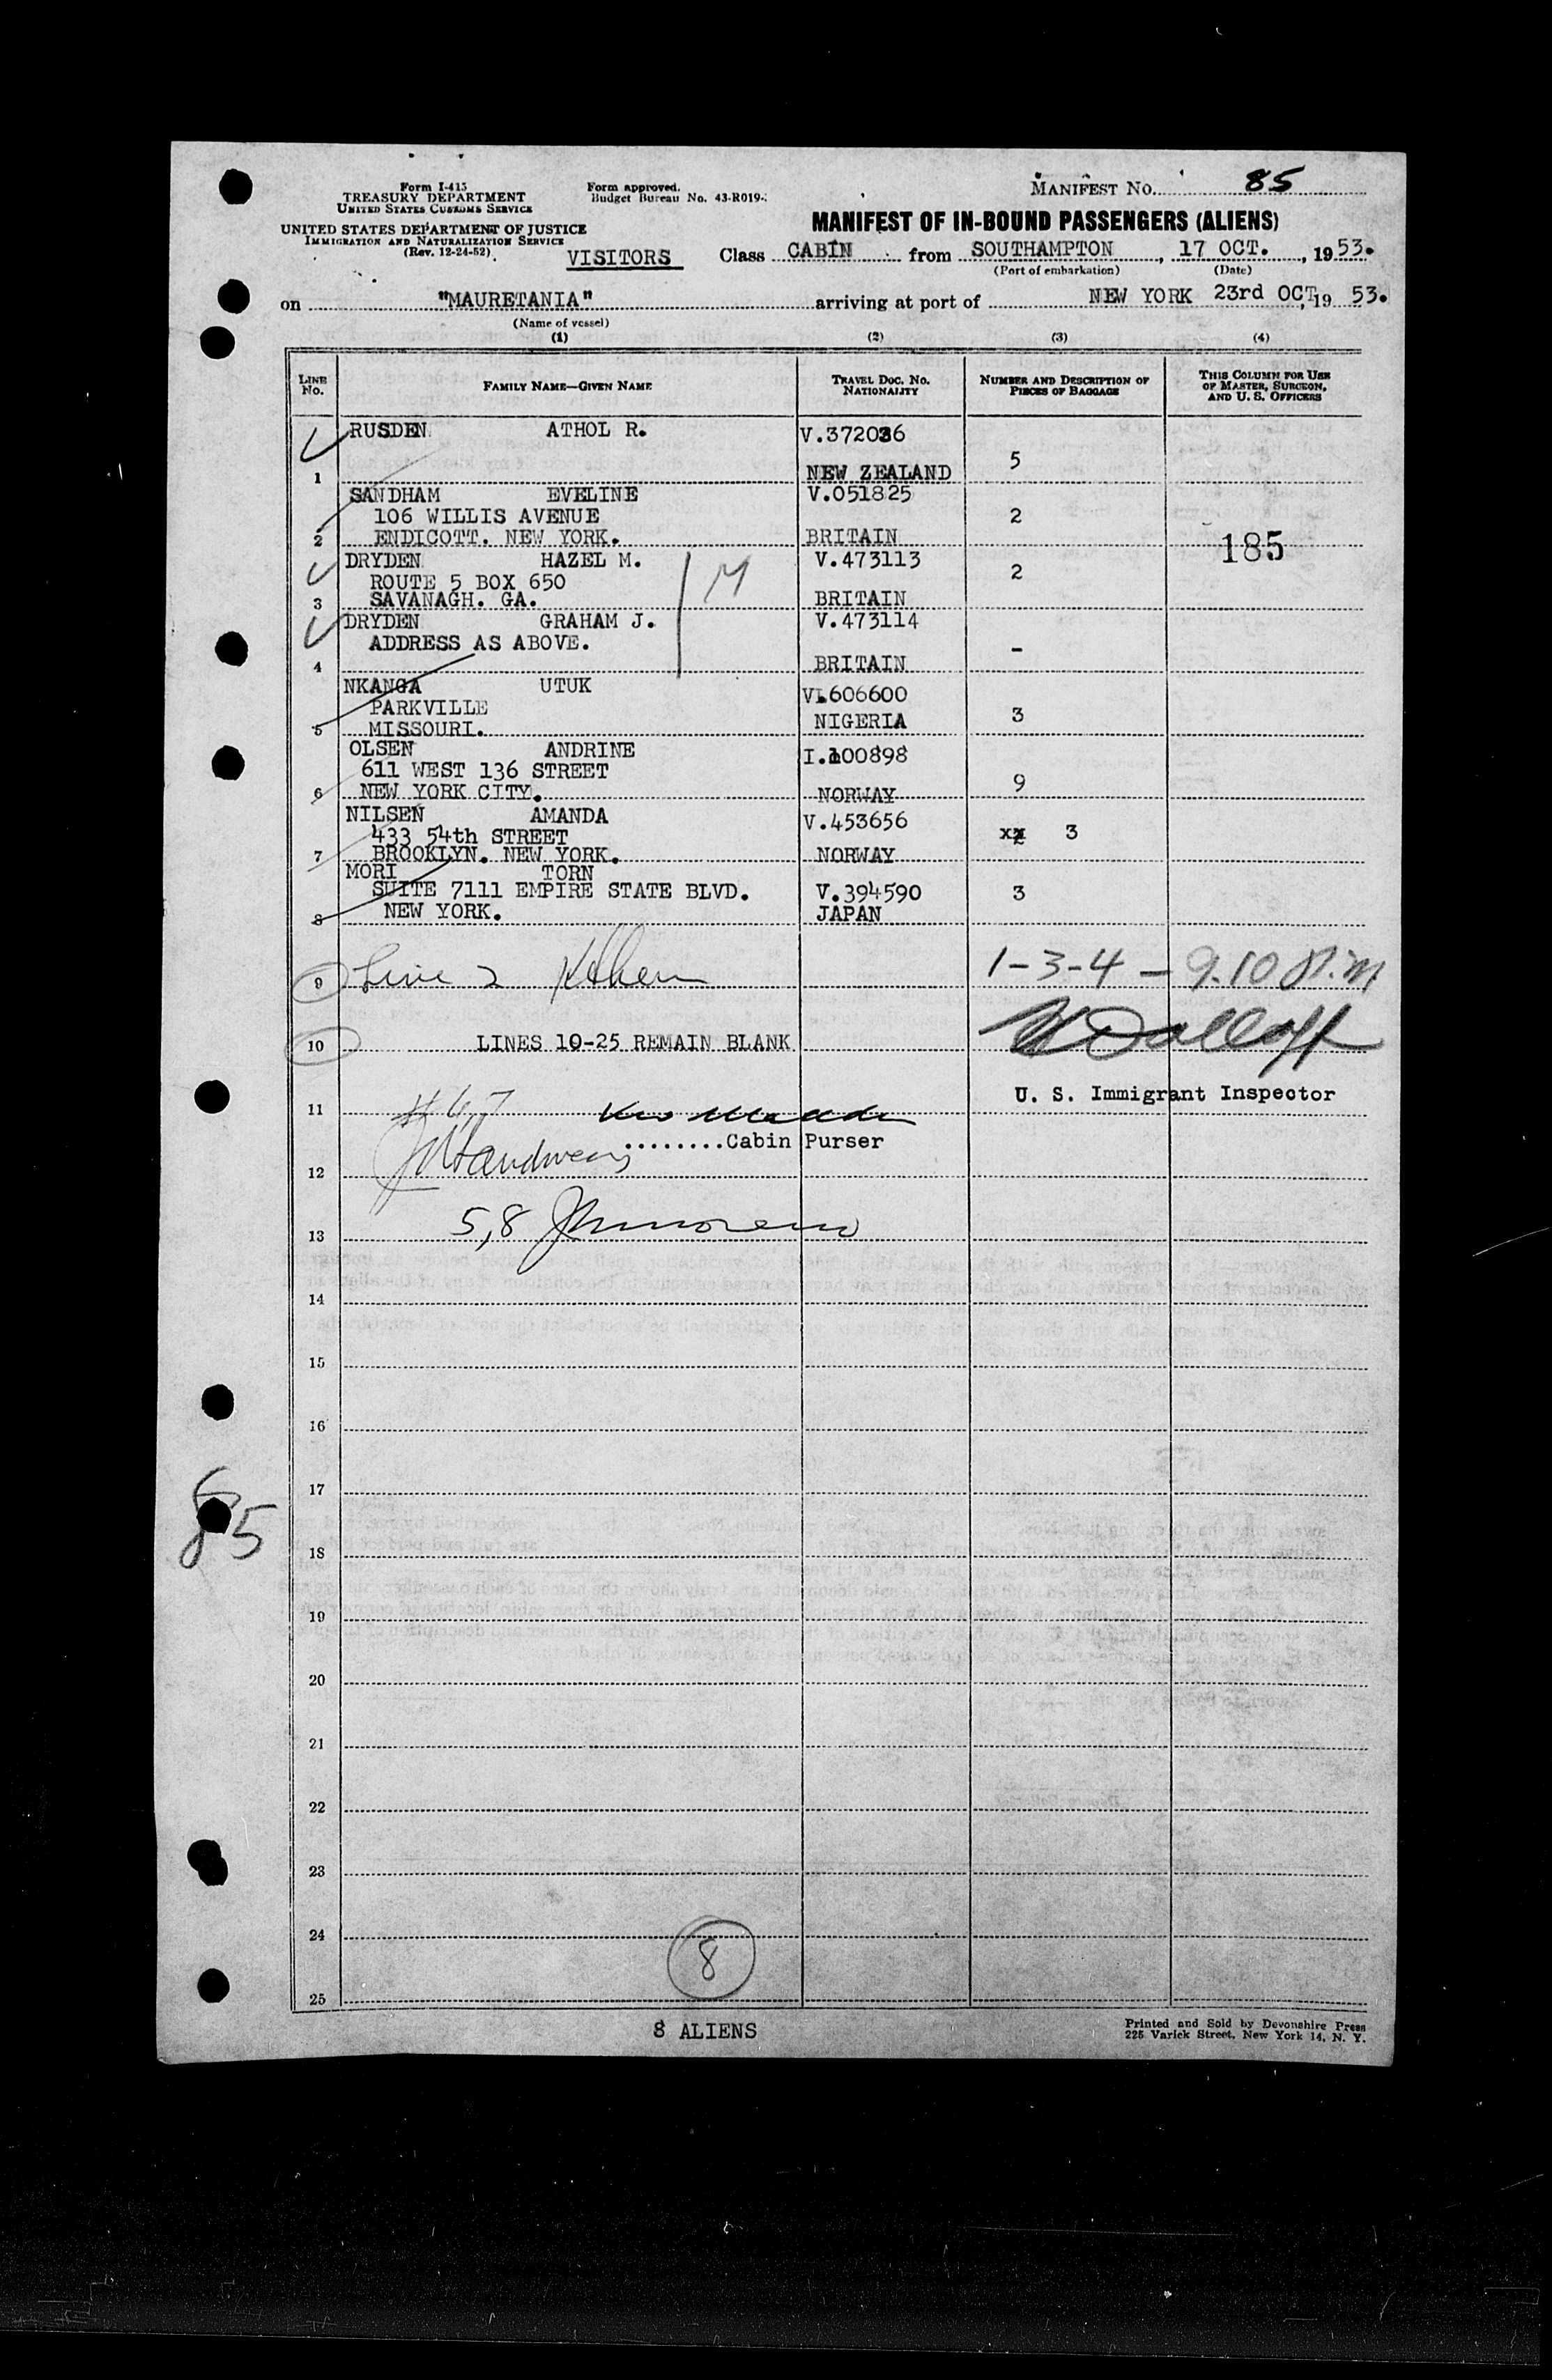 Form I-415
TREASURY DEPARTMENT
UNITED STATES CUSTOMS SERVICE
UNITED STATES DEPARTMENT OF JUSTICE
IMMIGRATION AND NATURALIZATION SERVICE
(Rev. 12-24-52)
Form approved.
Budget Bureau No. 43-R019-
MANIFEST No. 85
MANIFEST OF IN-BOUND PASSENGERS (ALIENS)
VISITORS Class CABIN from SOUTHAMPTON, 17 OCT., 1953.
(Port of embarkation) (Date)
on "MAURETANIA" arriving at port of NEW YORK 23rd OCT, 19 53.
(Name of vessel)
(1) (2) (3) (4)
LINE No. FAMILY NAME—GIVEN NAME TRAVEL DOC. NO. NATIONALITY NUMBER AND DESCRIPTION OF PIECES OF BAGGAGE THIS COLUMN FOR USE OF MASTER, SURGEON, AND U. S. OFFICERS
RUSDEN ATHOL R. V.372036
1 NEW ZEALAND 5
SANDHAM EVELINE V.051825
106 WILLIS AVENUE 2
2 ENDICOTT. NEW YORK. BRITAIN 185
DRYDEN HAZEL M. V.473113
ROUTE 5 BOX 650 M 2
3 SAVANAGH. GA. BRITAIN
DRYDEN GRAHAM J. V.473114
ADDRESS AS ABOVE. -
4 BRITAIN
NKANGA UTUK V.606600
PARKVILLE NIGERIA 3
5 MISSOURI.
OLSEN ANDRINE I.100898
611 WEST 136 STREET
6 NEW YORK CITY. NORWAY 9
NILSEN AMANDA V.453656
433 54th STREET xx 3
7 BROOKLYN. NEW YORK. NORWAY
MORI TORN
SUITE 7111 EMPIRE STATE BLVD. V.394590 3
8 NEW YORK. JAPAN
9 Line 2 1-3-4 - 9.10 P.M
10 LINES 10-25 REMAIN BLANK
U. S. Immigrant Inspector
11 # 6,7
........Cabin Purser
12
13 5,8
14
15
16
17
85
18
19
20
21
22
23
24
8
25
8 ALIENS
Printed and Sold by Devonshire Press
225 Varick Street, New York 14, N. Y.